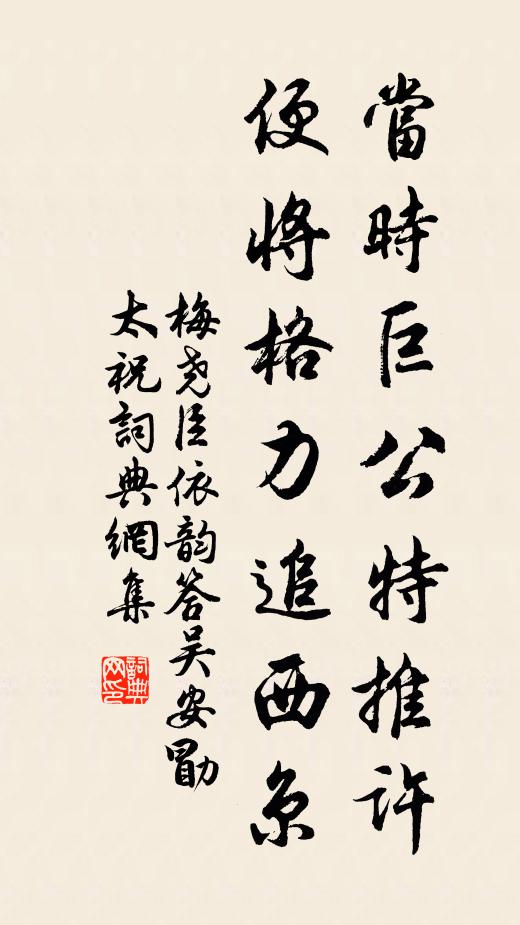 當時巨公特推許
便將格力追西京
梅堯臣依韵答吴安勖
太祝詞典網集
詞典網印